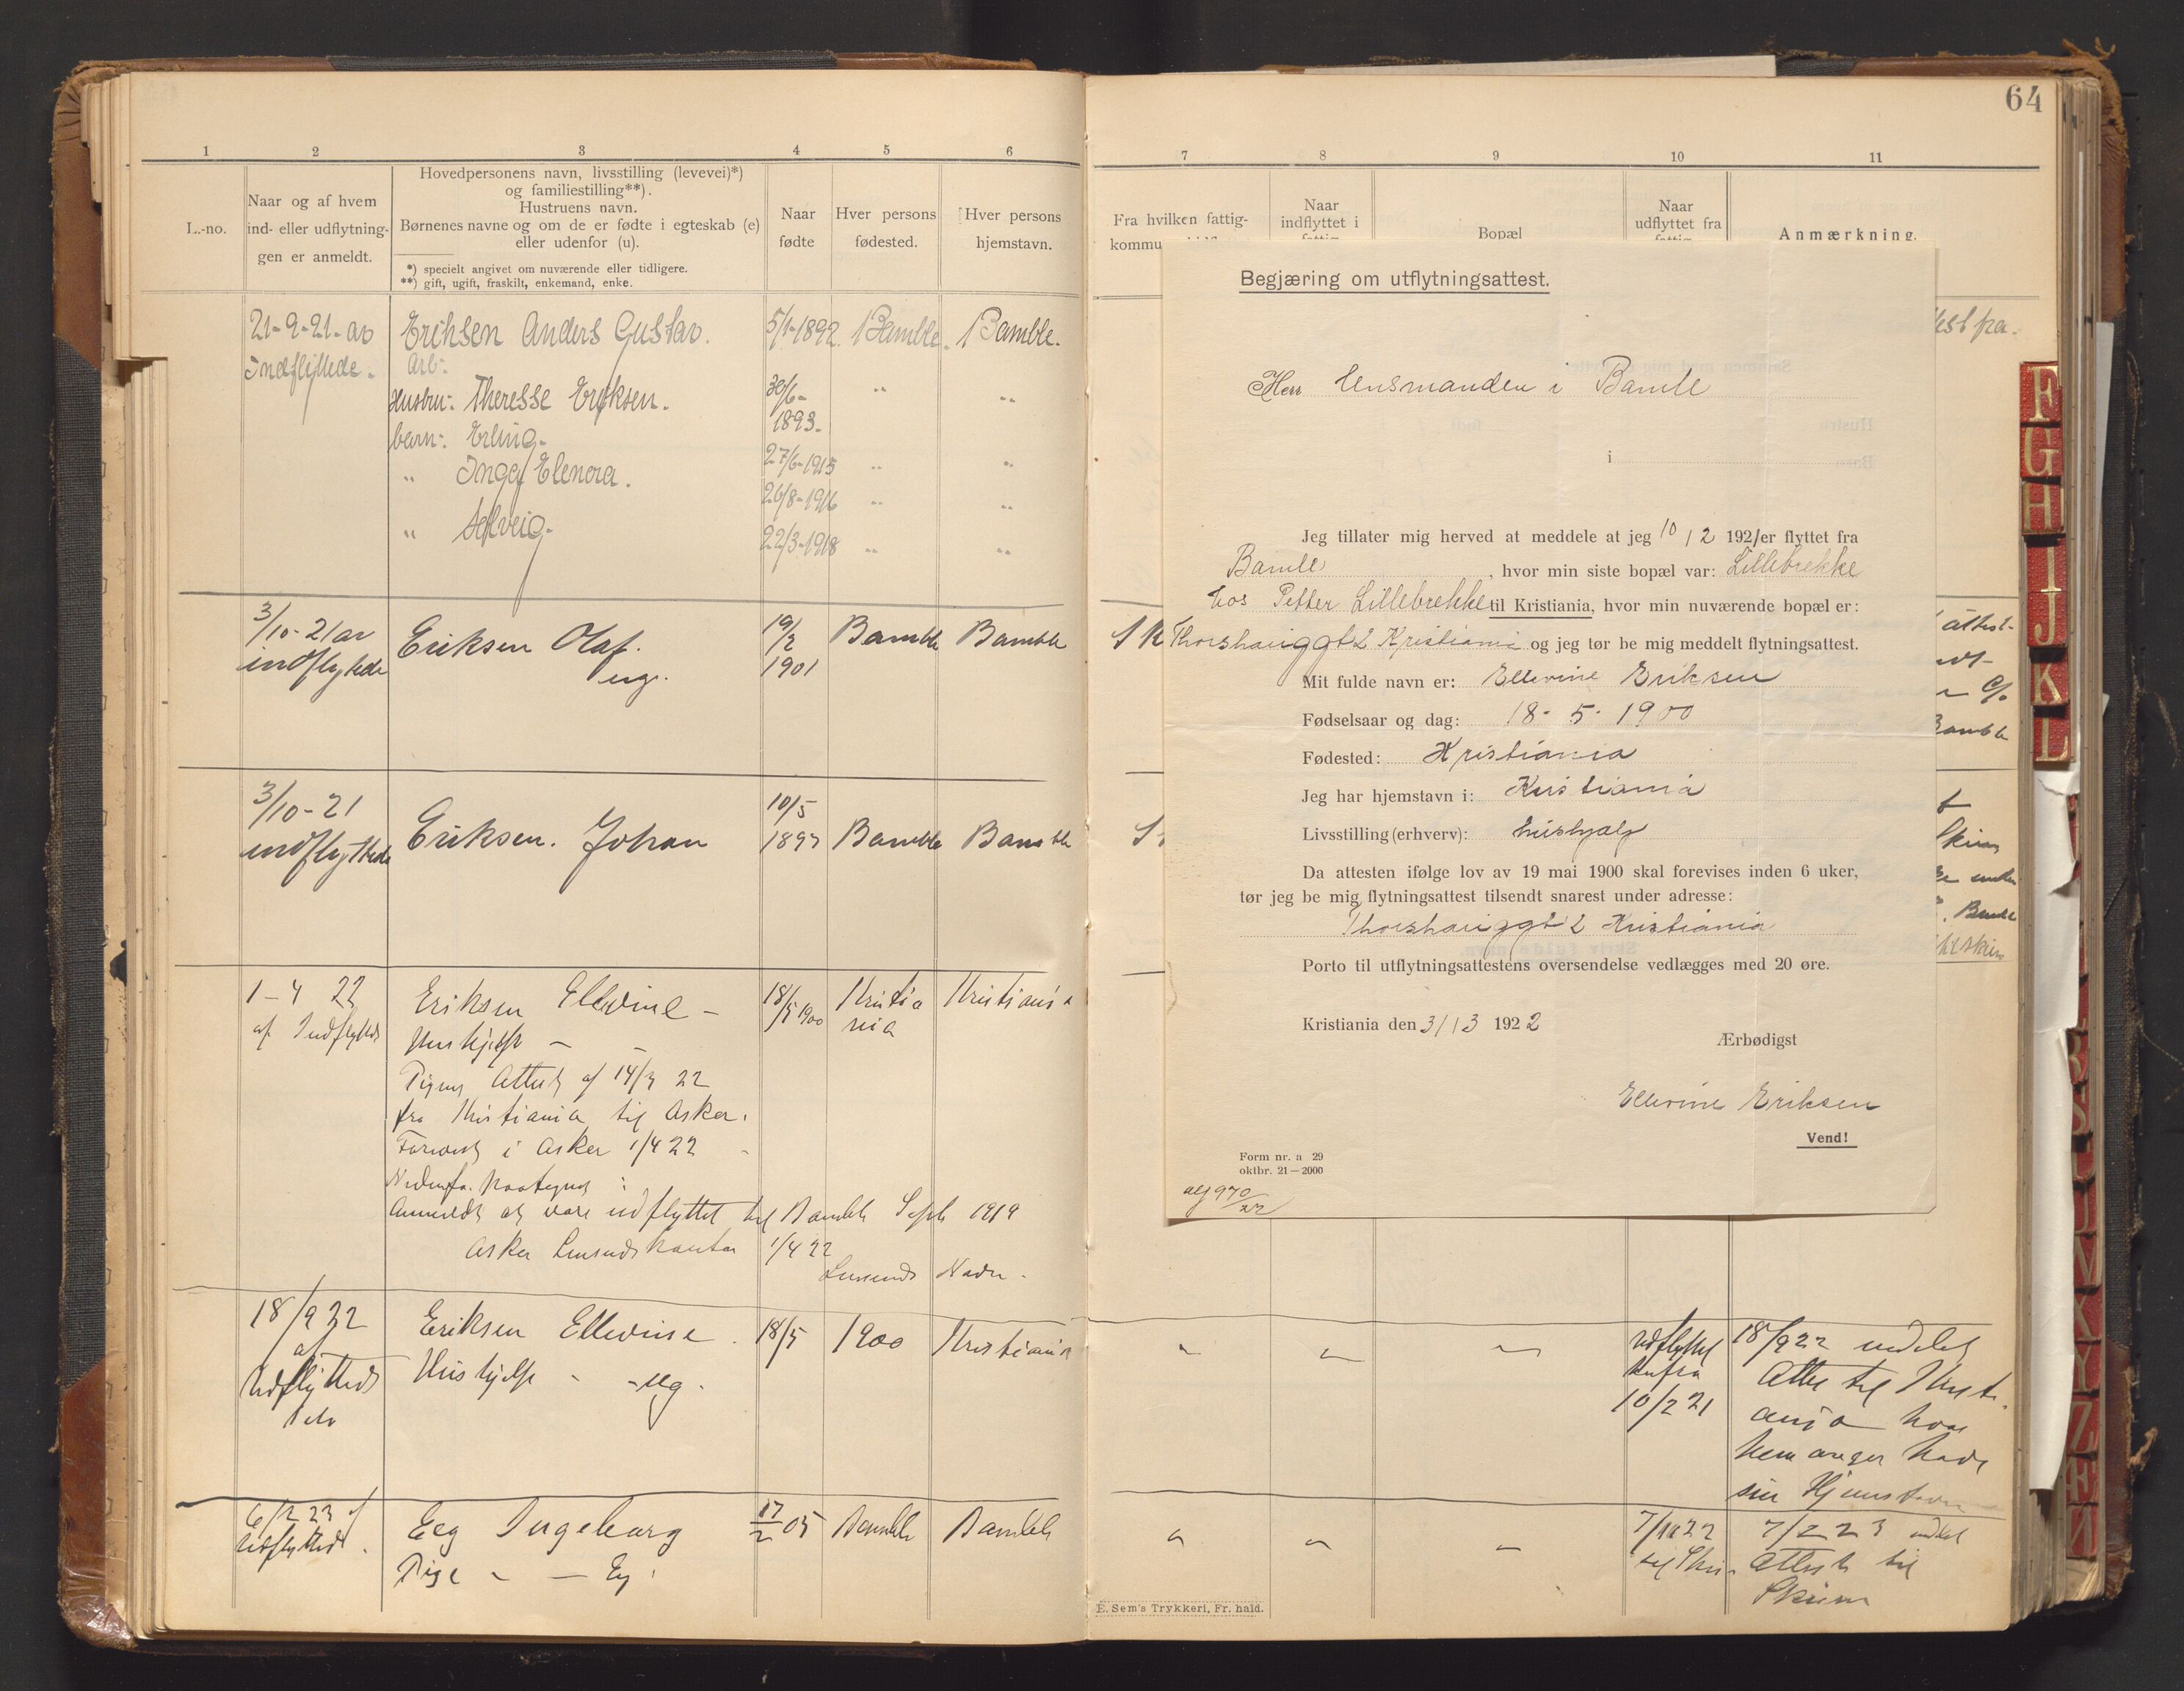 64
1 2 3 4 5 6
L.-no.
Naar og af hvem
ind- eller udflytning-
gen er anmeldt.
Hovedpersonens navn, livsstilling (levevei)*)
og familiestilling**).
Hustruens navn.
Børnenes navne og om de er fødte i egteskab (e)
eller udenfor (u).
*) specielt angivet om nuværende eller tidligere.
**) gift, ugift, fraskilt, enkemand, enke.
Naar
fødte
Hver persons
fødested.
Hver persons
hjemstavn.
21-9-21- av Eriksen Anders Gustav. 5/1-1892. Bamble. Bamble.
Indflyttede. Arb-.
Hustru-. Theresse Eriksen. 30/6- " "
1893-
barn-. Erling- 27/6-1915 " "
" Inga Elenora. 26/8-1916 " "
" Solveig- 22/3-1918 " "
3/10-21 av Eriksen Olaf. 19/2 Bamble Bamble
indflyttede ug. 1901
3/10-21 Eriksen. Johan 10/5 Bamble Bamble
indflyttede 1897
1-4 22 Eriksen Ellevine - 18/5 1900 Kristia Kristiania
af Indflyttede Huskjelp - nia
Attest af 14/3 22
fra Kristiania til Asker.
i Asker 1/4 22
Anmeldt at være udflyttet til Bamble Sept 1919
Asker Lensmandskontor 1/4 22
Lensmands Navn.
18/9 22 Eriksen Ellevine. 18/5 1900 Kristiania
af Huskjelp - ug.
Udflyttede
6/2 23 af Eeg Ingeborg 17/2 05 Bamble Bamble
Udflyttede. Pige - - Eg.
7 8 9 10 11
Fra hvilken fattig-
kommu
Naar
indflyttet i
Bopæl
Naar
udflyttet fra
Anmærkning.
Begjæring om utflytningsattest.
Herr lensmanden i Bamle
i
Jeg tillater mig herved at meddele at jeg 10/2 1921 er flyttet fra
Bamle, hvor min siste bopæl var: Lillebrekke
hos Petter Lillebrekke til Kristiania, hvor min nuværende bopæl er:
Thorshauggt 2 Kristiania og jeg tør be mig meddelt flytningsattest.
Mit fulde navn er: Ellevine Eriksen
Fødselsaar og dag: 18-5-1900
Fødested: Kristiania
Jeg har hjemstavn i: Kristiania
Livsstilling (erhverv): hushjælp
Da attesten ifølge lov av 19 mai 1900 skal forevises inden 6 uker,
tør jeg be mig flytningsattest tilsendt snarest under adresse:
Thorshauggt 2 Kristiania
Porto til utflytningsattestens oversendelse vedlægges med 20 øre.
Kristiania den 31/3 1922
Ærbødigst
Ellevine Eriksen
Vend!
Form nr. a 29
oktbr. 21—2000
970/22
attest-
Bamble
udflyttet 18/9 22 meddelt
herfra Attest til Kristi-
10/2 21 ania hvor
hun angir have
sin Hjemstavn
7/10 22 7/2 23 meddelt
til Skien Attest til
Skien
E. Sem's Trykkeri, Fr. hald.
F
G
H
I
J
K
L
X
Y
Z
Æ
Ø